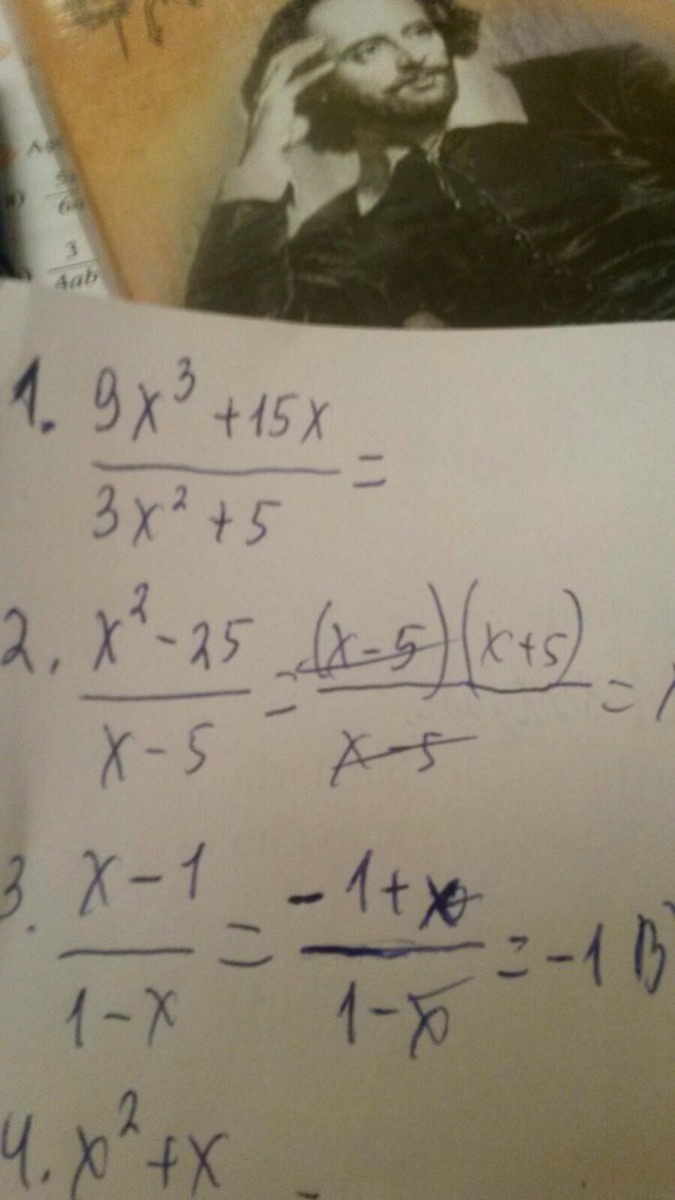 3
4ab
1. 9x³ + 15x
3x² + 5 =
2. x² - 25 = (x - 5)(x + 5) =
x - 5 x - 5
3. x - 1 = - 1 + x = - 1
1 - x 1 - x
4. x² + x